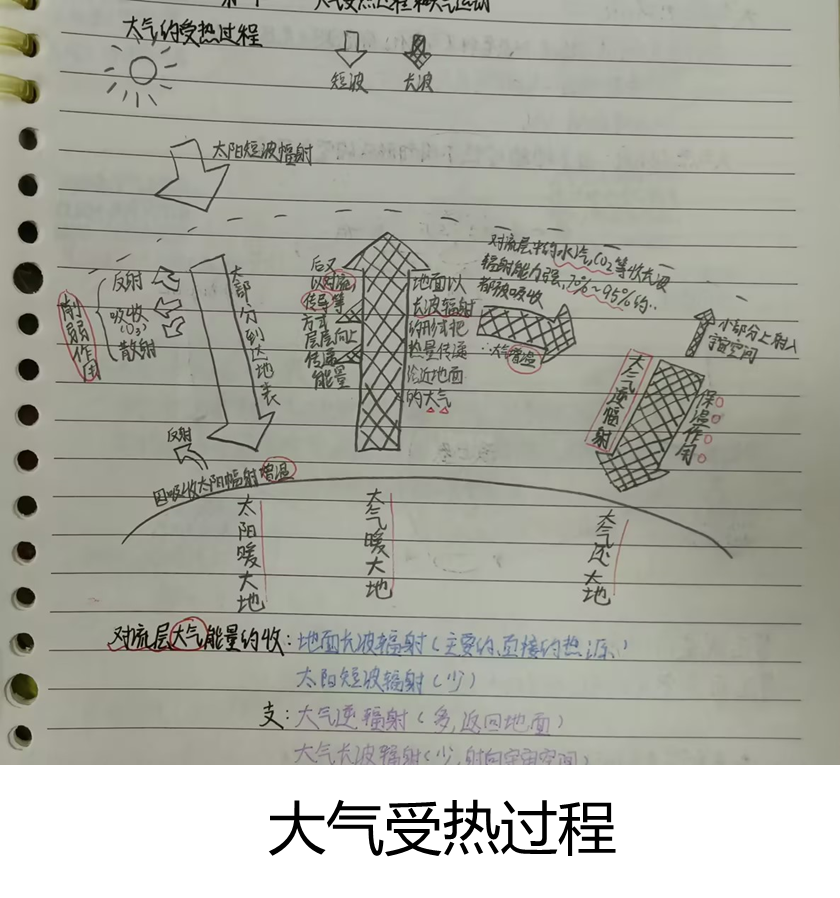 大气受热过程和大气运动
大气的受热过程
短波
长波
太阳短波辐射
反射
吸收
(O₃)
散射
削弱作用
大部分到达地表
后又
以对流,
传导等
方式
层层向上
传递
能量
地面以
长波辐射
的形式把
热量传递
给近地面
的大气
对流层中的水汽,CO₂等吸长波
辐射能力强,75%~95%的
都被吸收
∴大气增温
小部分上射入
宇宙空间
大气逆辐射
保温作用
反射
因吸收太阳辐射增温
太阳暖大地
大气暖大地
大气还大地
对流层大气能量的收:地面长波辐射(主要的、直接的热源、)
太阳短波辐射(少)
支:大气逆辐射(多,返回地面)
大气长波辐射(少,射向宇宙空间)
大气受热过程